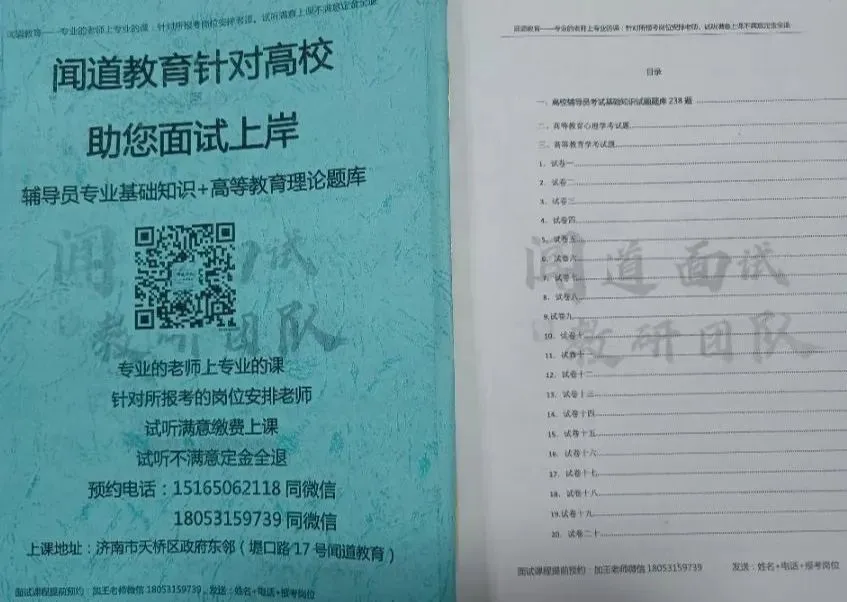 闻道教育——专业的老师上专业的课：针对所报考岗位安排老师。试听满意上课不满意定金全退
闻道教育针对高校
助您面试上岸
辅导员专业基础知识+高等教育理论题库
闻道面试
教研团队
专业的老师上专业的课
针对所报考的岗位安排老师
试听满意缴费上课
试听不满意定金全退
预约电话：15165062118 同微信
18053159739 同微信
上课地址：济南市天桥区政府东邻（堤口路 17 号闻道教育）
面试课程提前预约 加王老师微信 18053159739，发送：姓名+电话+报考岗位
闻道教育——专业的老师上专业的课：针对所报考岗位安排老师。试听满意上课不满意定金全退
目录
一、高校辅导员考试基础知识试题题库 238 题
二、高等教育心理学考试题
三、高等教育学考试题
1、试卷一
2、试卷二
3、试卷三
4、试卷四
5、试卷五
6、试卷六
7、试卷七
8、试卷八
9.试卷九
10、试卷十
11、试卷十一
12、试卷十二
13、试卷十三
14、试卷十四
15、试卷十五
16、试卷十六
17、试卷十七
18、试卷十八
19.试卷十九
20、试卷二十
闻道面试
教研团队
面试课程提前预约：加王老师微信 18053159739 发送：姓名+电话+报考岗位